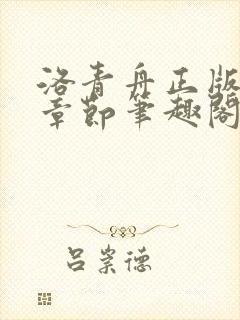 洛青舟正版
章節筆趣閣
呂崇德